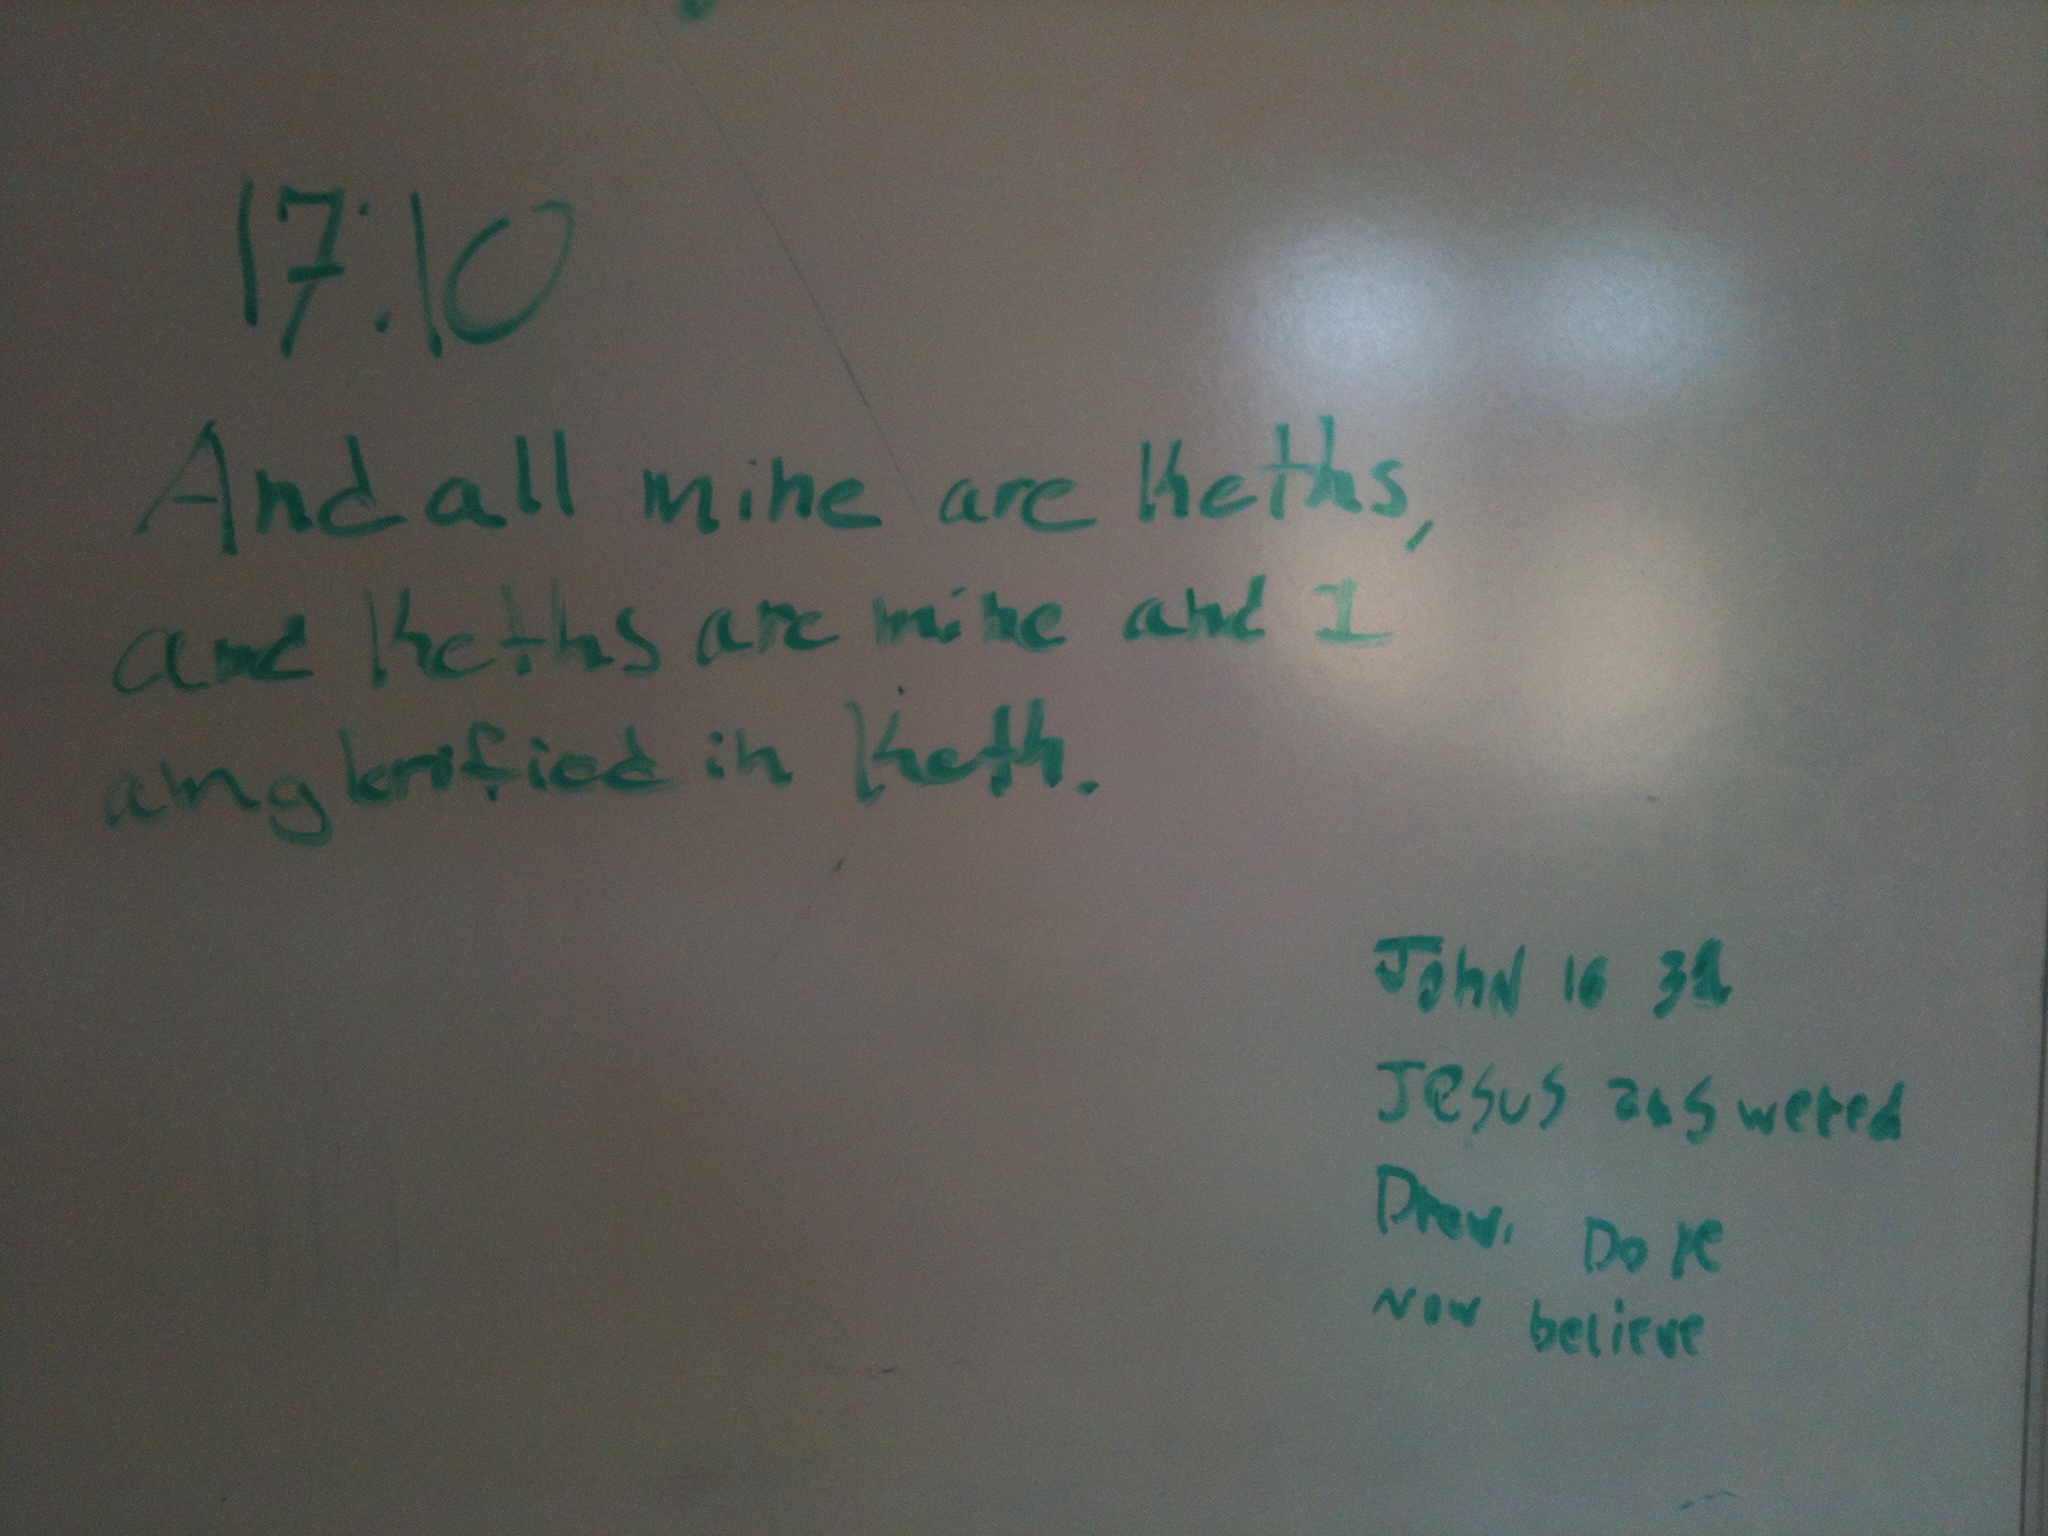 17:10
And all mine are Keths,
and Keths are mine and I
am glorified in Keth.
John 16 31
Jesus answered
Drew. Do ye
Now believe